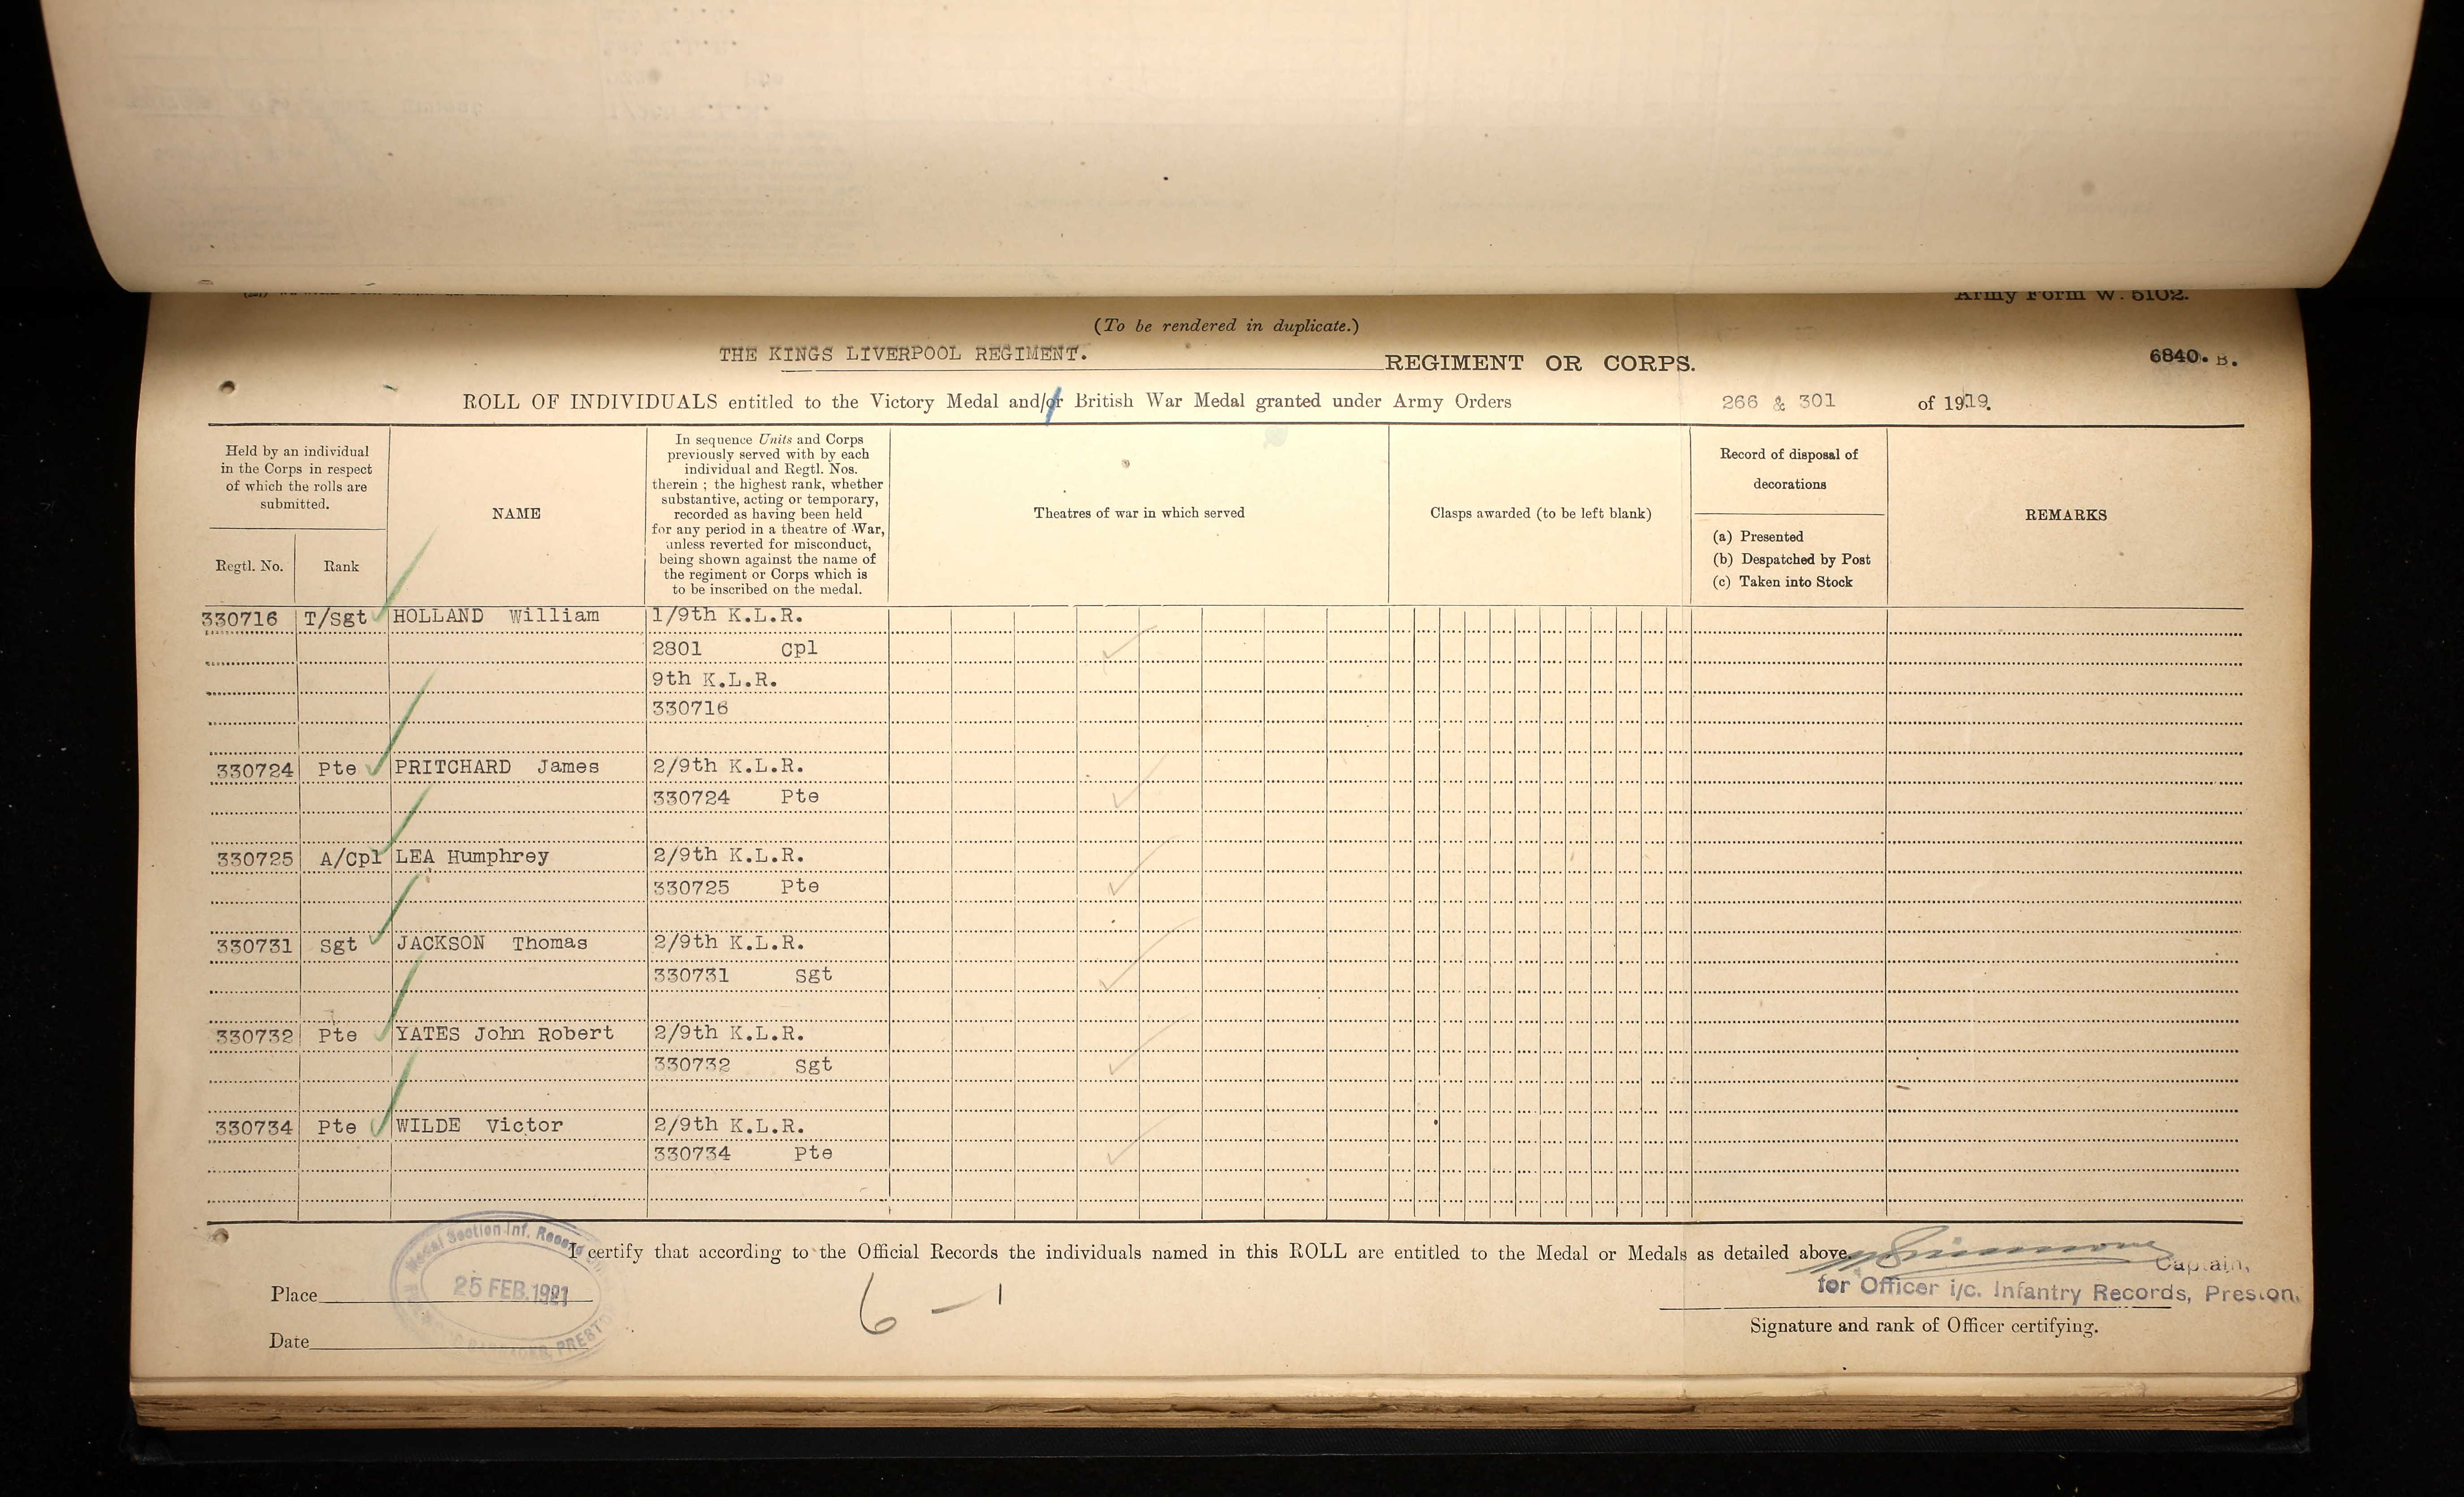 Army Form W. 5102.
(To be rendered in duplicate.)
THE KINGS LIVERPOOL REGIMENT. REGIMENT OR CORPS. 6840. B.
ROLL OF INDIVIDUALS entitled to the Victory Medal and/or British War Medal granted under Army Orders 266 & 301 of 1919.
Held by an individual
in the Corps in respect
of which the rolls are
submitted.
Regtl. No. Rank
NAME
In sequence Units and Corps
previously served with by each
individual and Regtl. Nos.
therein ; the highest rank, whether
substantive, acting or temporary,
recorded as having been held
for any period in a theatre of War,
unless reverted for misconduct,
being shown against the name of
the regiment or Corps which is
to be inscribed on the medal.
Theatres of war in which served
Clasps awarded (to be left blank)
Record of disposal of
decorations
(a) Presented
(b) Despatched by Post
(c) Taken into Stock
REMARKS
330716 T/Sgt HOLLAND William 1/9th K.L.R.
2801 Cpl
9th K.L.R.
330716
330724 Pte PRITCHARD James 2/9th K.L.R.
330724 Pte
330725 A/Cpl LEA Humphrey 2/9th K.L.R.
330725 Pte
330731 Sgt JACKSON Thomas 2/9th K.L.R.
330731 Sgt
330732 Pte YATES John Robert 2/9th K.L.R.
330732 Sgt
330734 Pte WILDE Victor 2/9th K.L.R.
330734 Pte
Medal Section Inf. Record
25 FEB. 1921
PRESTON
I certify that according to the Official Records the individuals named in this ROLL are entitled to the Medal or Medals as detailed above.
Captain,
for Officer i/c. Infantry Records, Preston.
Place
6 – 1
Signature and rank of Officer certifying.
Date